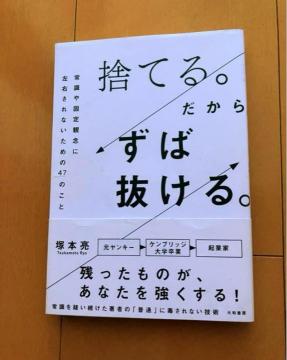 捨てる。
だから
ずば
抜ける。
常識や固定観念に
左右されないための47のこと
塚本亮
Tsukamoto Ryo
元ヤンキー
ケンブリッジ
大学卒業
起業家
残ったものが、
あなたを強くする!
常識を疑い続けた著者の「普通」に毒されない技術
大和書房